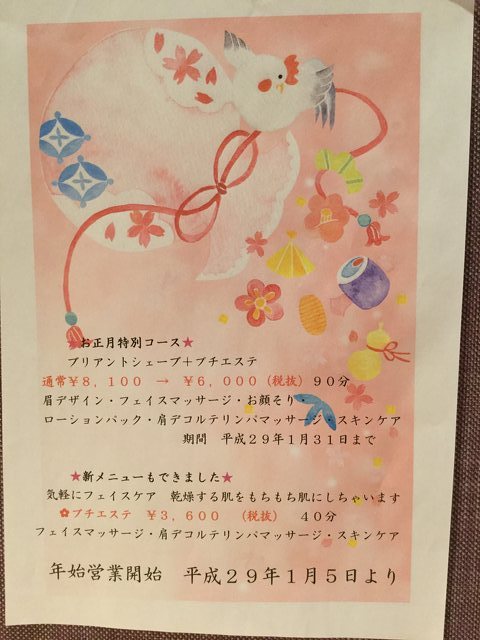 ★お正月特別コース★
ブリアントシェーブ＋プチエステ
通常￥８，１００ → ￥６，０００（税抜）９０分
眉デザイン・フェイスマッサージ・お顔そり
ローションパック・肩デコルテリンパマッサージ・スキンケア
期間 平成２９年１月３１日まで
★新メニューもできました★
気軽にフェイスケア 乾燥する肌をもちもち肌にしちゃいます
プチエステ ￥３，６００ （税抜） ４０分
フェイスマッサージ・肩デコルテリンパマッサージ・スキンケア
年始営業開始 平成２９年１月５日より